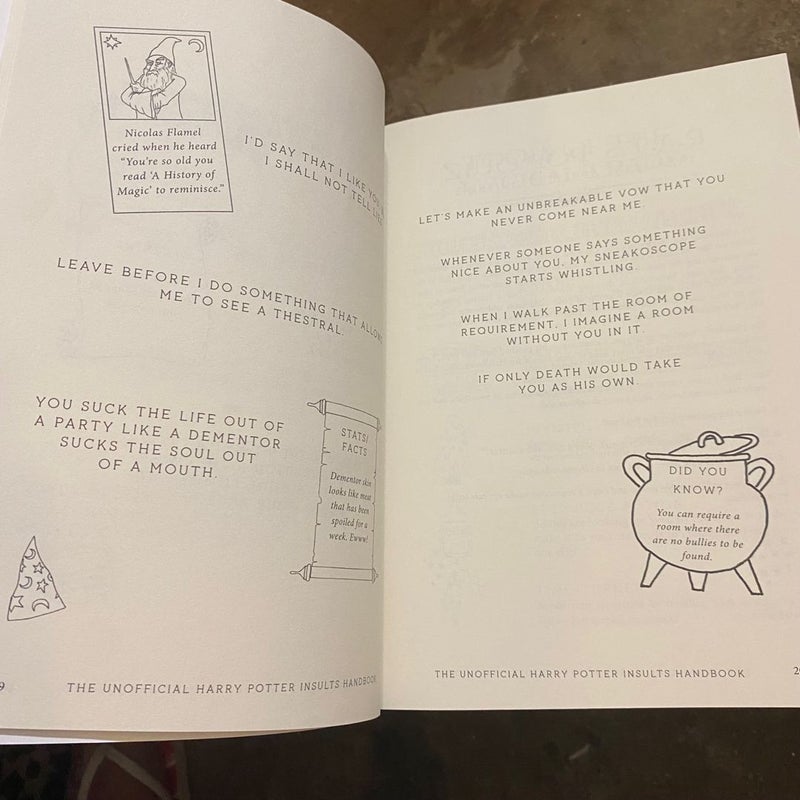 Nicolas Flamel
cried when he heard
"You're so old you
read 'A History of
Magic' to reminisce."
I'D SAY THAT I LIKE YOU
I SHALL NOT TELL LIES
LEAVE BEFORE I DO SOMETHING THAT ALLOWS
ME TO SEE A THESTRAL.
YOU SUCK THE LIFE OUT OF
A PARTY LIKE A DEMENTOR
SUCKS THE SOUL OUT
OF A MOUTH.
STATS/
FACTS
Dementor skin
looks like meat
that has been
spoiled for a
week. Ewww!
9
THE UNOFFICIAL HARRY POTTER INSULTS HANDBOOK
LET'S MAKE AN UNBREAKABLE VOW THAT YOU
NEVER COME NEAR ME.
WHENEVER SOMEONE SAYS SOMETHING
NICE ABOUT YOU, MY SNEAKOSCOPE
STARTS WHISTLING.
WHEN I WALK PAST THE ROOM OF
REQUIREMENT, I IMAGINE A ROOM
WITHOUT YOU IN IT.
IF ONLY DEATH WOULD TAKE
YOU AS HIS OWN.
DID YOU
KNOW?
You can require a
room where there
are no bullies to be
found.
THE UNOFFICIAL HARRY POTTER INSULTS HANDBOOK